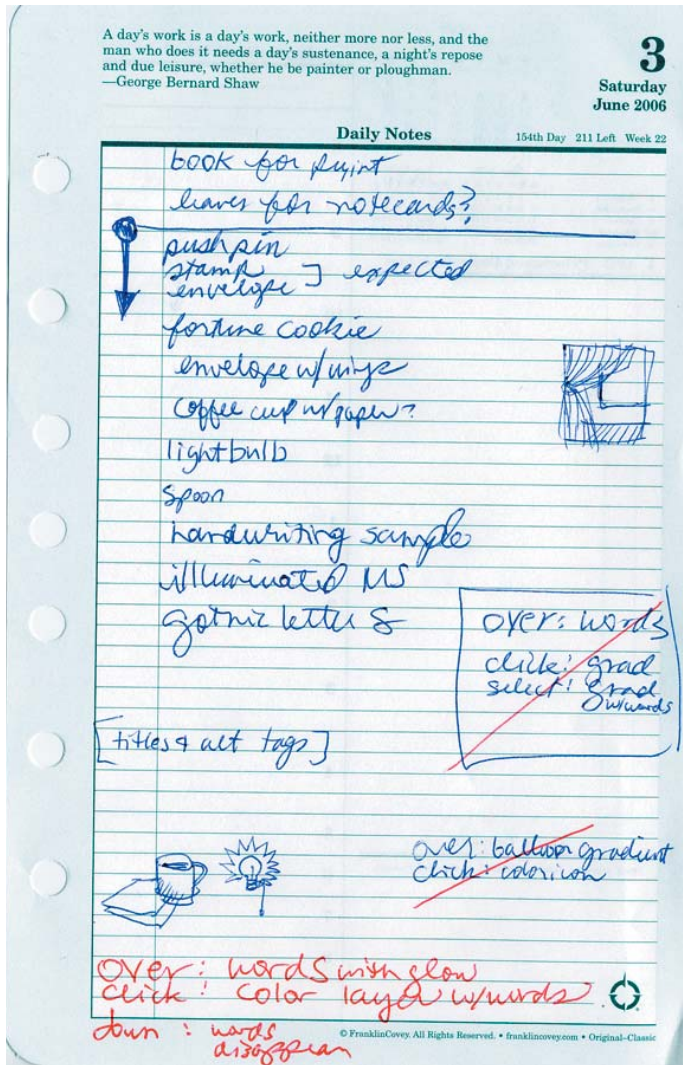 A day's work is a day's work, neither more nor less, and the
man who does it needs a day's sustenance, a night's repose
and due leisure, whether he be painter or ploughman.
—George Bernard Shaw
3
Saturday
June 2006
Daily Notes
154th Day 211 Left Week 22
book for print
leaves for notecards?
pushpin
stamp ] expected
envelope
fortune cookie
envelope w/wings
coffee cup w/paper?
lightbulb
spoon
handwriting sample
illuminated MS
gothic letter S
over: words
click: grad
select: grad
w/words
[titles & alt tags]
over: balloon gradient
click: color icon
over: words with glow
click: color layer w/words
down: words
disappear
© FranklinCovey. All Rights Reserved. • franklincovey.com • Original–Classic